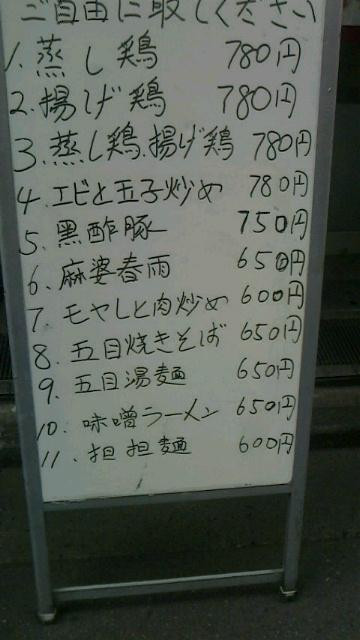 ご自由に取してください
1. 蒸し鶏 780円
2. 揚げ鶏 780円
3. 蒸し鶏、揚げ鶏 780円
4. エビと玉子炒め 780円
5. 黒酢豚 750円
6. 麻婆春雨 650円
7. モヤしと肉炒め 600円
8. 五目焼きそば 650円
9. 五目湯麺 650円
10. 味噌ラーメン 650円
11. 担担麺 600円